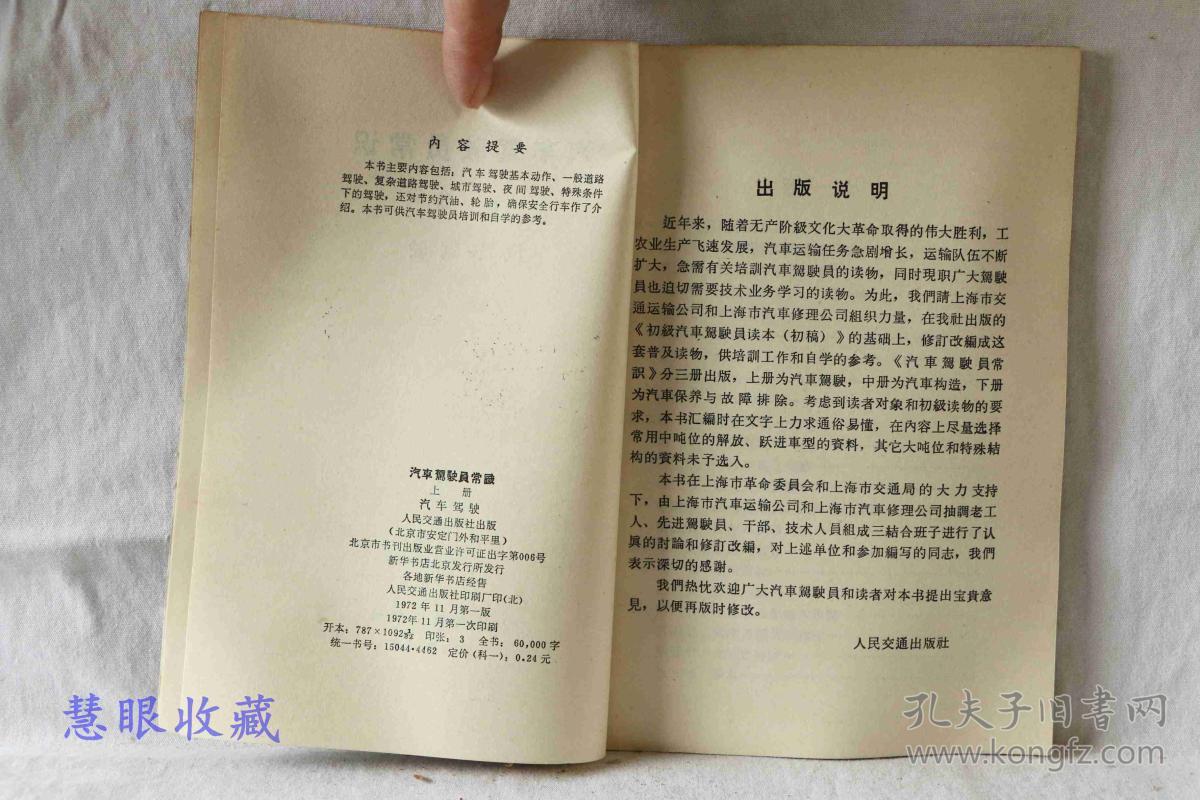 内容提要
本书主要内容包括：汽车驾驶基本动作、一般道路
驾驶、复杂道路驾驶、城市驾驶、夜间驾驶、特殊条件
下的驾驶，还对节约汽油、轮胎，确保安全行车作了介
绍。本书可供汽车驾驶员培训和自学的参考。
汽車駕駛員常識
上册
汽车驾驶
人民交通出版社出版
（北京市安定门外和平里）
北京市书刊出版业营业许可证出字第006号
新华书店北京发行所发行
各地新华书店经售
人民交通出版社印刷厂印(北)
1972年11月第一版
1972年11月第一次印刷
开本：787×1092 1/32 印张：3 全书：60,000字
统一书号：15044·4462 定价(科一)：0.24元
出版说明
近年来，随着无产阶級文化大革命取得的伟大胜利，工
农业生产飞速发展，汽車运输任务急剧增长，运输队伍不断
扩大，急需有关培訓汽車駕駛員的读物，同时現职广大駕駛
員也迫切需要技术业务学习的读物。为此，我們請上海市交
通运输公司和上海市汽車修理公司組织力量，在我社出版的
《初級汽車駕駛員读本（初稿）》的基础上，修訂改編成这
套普及读物，供培訓工作和自学的参考。《汽車駕駛員常
識》分三册出版，上册为汽車駕駛，中册为汽車构造，下册
为汽車保养与故障排除。考虑到读者对象和初級读物的要
求，本书汇編时在文字上力求通俗易懂，在內容上尽量选择
常用中吨位的解放、跃进車型的資料，其它大吨位和特殊結
构的資料未予选入。
本书在上海市革命委員会和上海市交通局的大力支持
下，由上海市汽車运输公司和上海市汽車修理公司抽調老工
人、先进駕駛員、干部、技术人員組成三結合班子进行了认
眞的討論和修訂改編，对上述单位和参加編写的同志，我們
表示深切的感謝。
我們热忱欢迎广大汽車駕駛員和读者对本书提出宝貴意
見，以便再版时修改。
人民交通出版社
慧眼收藏
孔夫子旧書网
www.kongfz.com